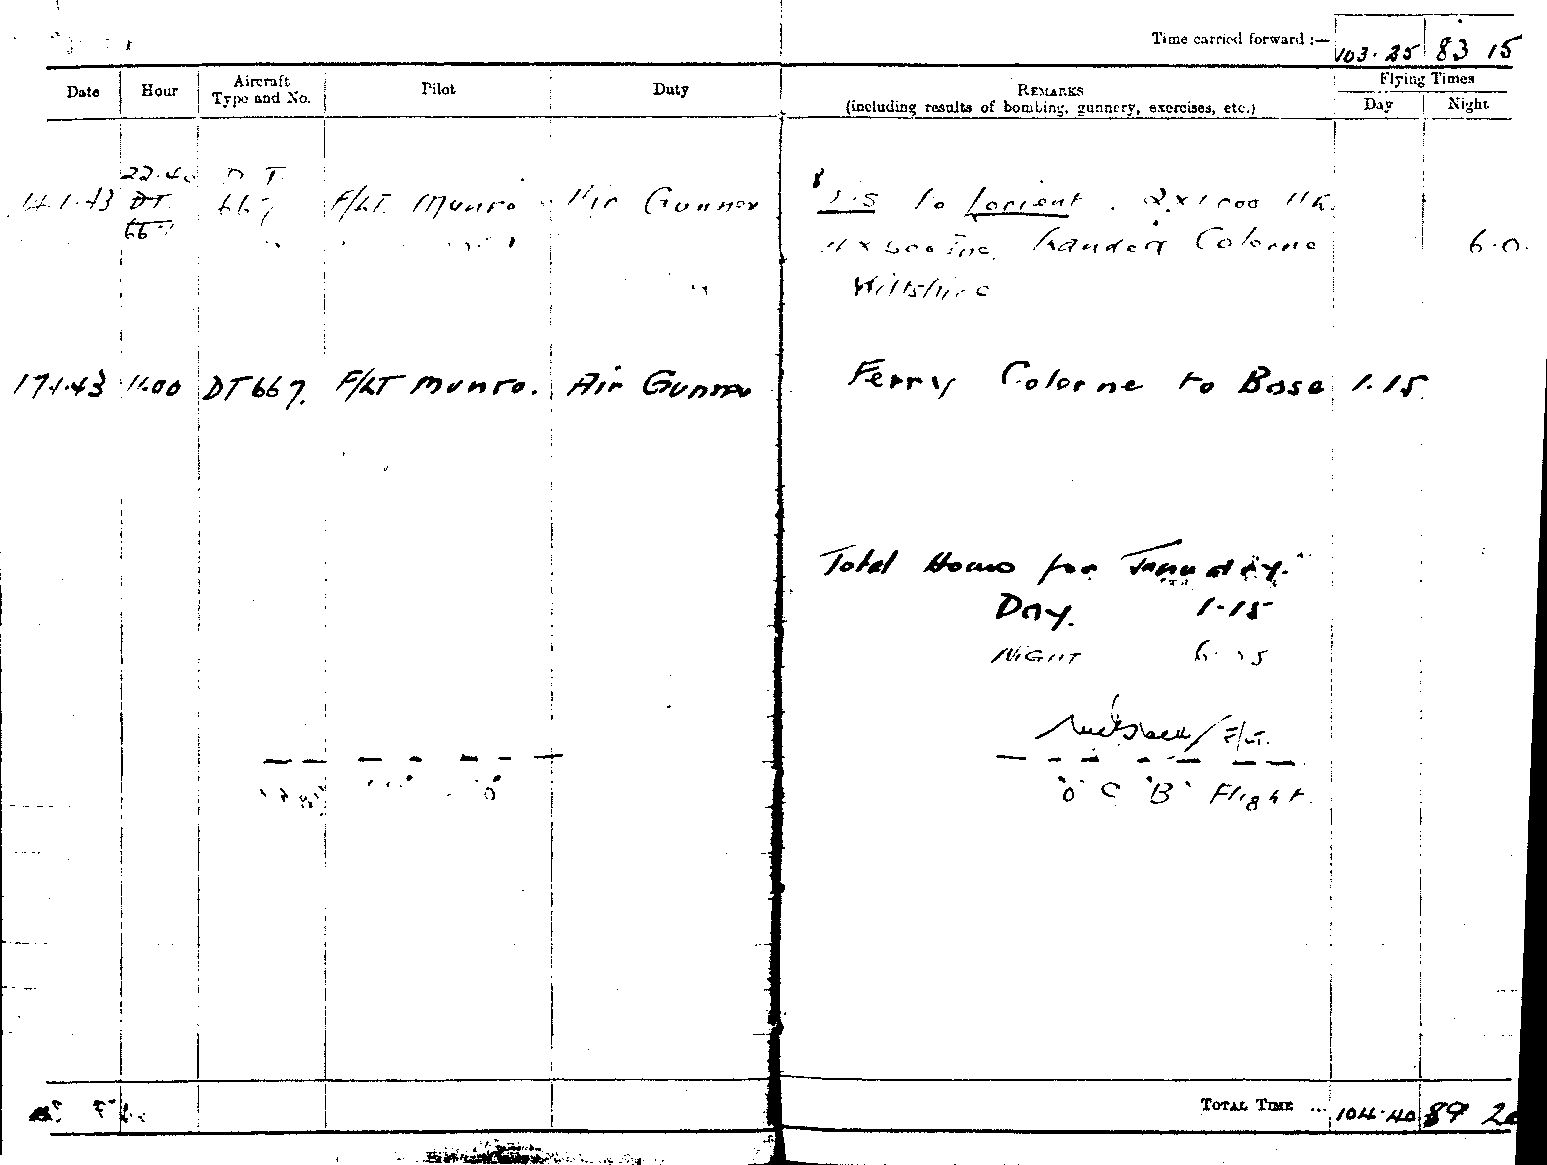 Time carried forward :— 103.25 83 15
Date Hour Aircraft Type and No. Pilot Duty REMARKS (including results of bombing, gunnery, exercises, etc.) Flying Times Day Night
14.1.43 22.40 DT 667 F/LT Munro Air Gunner To Lorient. 2 x 1000
DT Landed Colerne 6.0
667 Wiltshire
17.1.43 11.00 DT 667. F/LT Munro. Air Gunner Ferry Colerne to Base 1.15
Total Hours for January.
Day. 1.15
NIGHT
F/LT.
"O" C "B" Flight.
TOTAL TIME ... 104.40 89 20